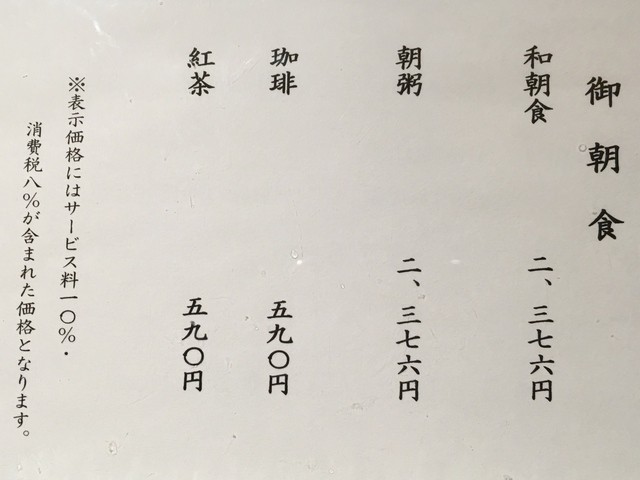 御朝食
和朝食 二、三七六円
朝粥 二、三七六円
珈琲 五九〇円
紅茶 五九〇円
※表示価格にはサービス料一〇%・
消費税八%が含まれた価格となります。